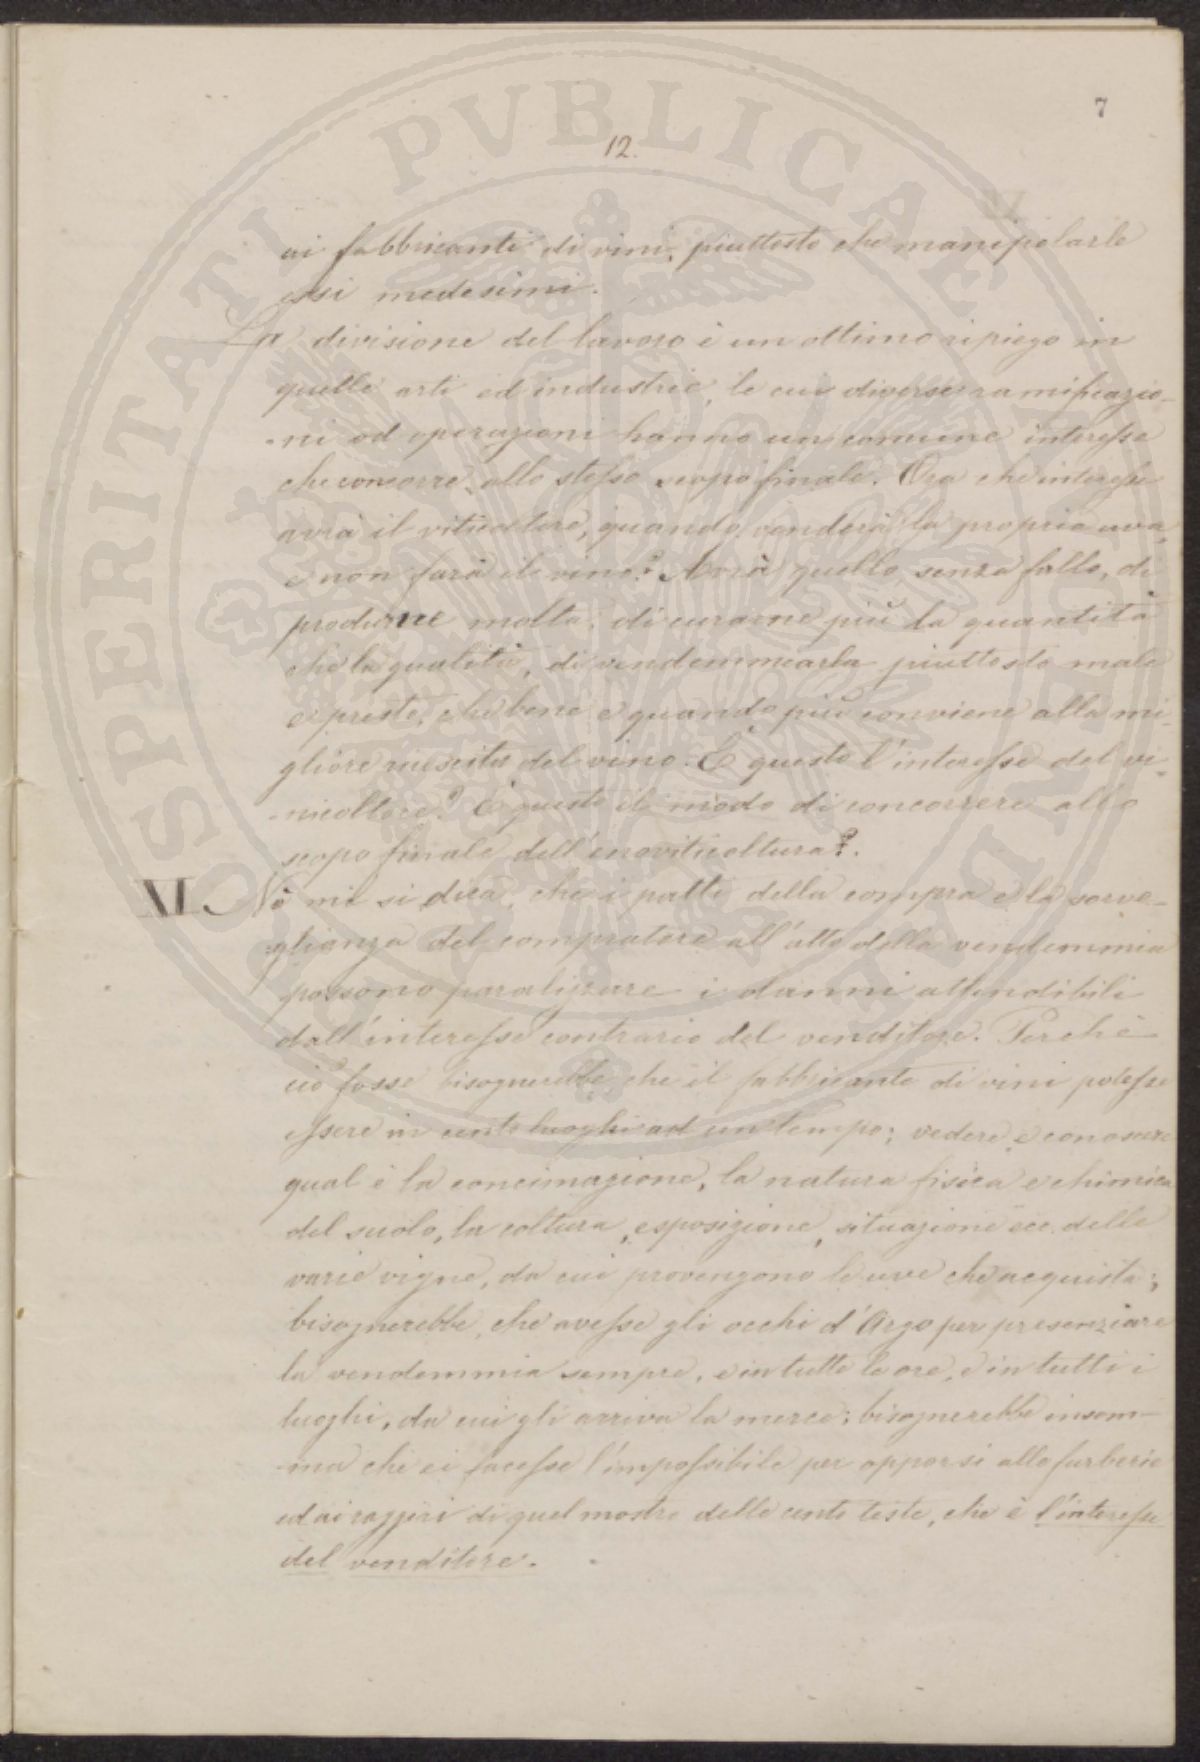 7
12.
ai fabbricanti di vini, piuttosto che manipolarle
essi medesimi.
La divisione del lavoro è un ottimo ripiego in
quelle arti ed industrie, le cui diverse ramificazio-
-ni od operazioni hanno un comune interesse
che concorre allo stesso scopo finale. Ora che interesse
avrà il viticoltore, quando venderà la propria uva,
e non farà il vino? Avrà quello, senza fallo, di
produrne molta, di curarne più la quantità
che la qualità, di vendemmiarla piuttosto male
e presto, che bene e quando più conviene alla mi-
gliore riescita del vino. È questo l'interesse del vi-
-nicoltore? È questo il modo di concorrere allo
scopo finale dell'enoviticoltura?.
XI. Nè mi si dica, che i patti della compra e la sorve-
glianza del compratore all'atto della vendemmia
possono paralizzare i danni attendibili
dall'interesse contrario del venditore. Perchè
ciò fosse bisognerebbe che il fabbricante di vini potesse
essere in cento luoghi ad un tempo; vedere e conoscere
qual è la concimazione, la natura fisica e chimica
del suolo, la coltura, esposizione, situazione ecc. delle
varie vigne, da cui provengono le uve che acquista;
bisognerebbe, che avesse gli occhi d'Argo per presenziare
la vendemmia sempre, e in tutte le ore, e in tutti i
luoghi, da cui gli arriva la merce; bisognerebbe insom-
-ma che ei facesse l'impossibile per opporsi alle furberie
ed ai raggiri di quel mostro delle cento teste, che è l'interesse
del venditore.
PROSPERITATI PVBLICAE AVGENDAE